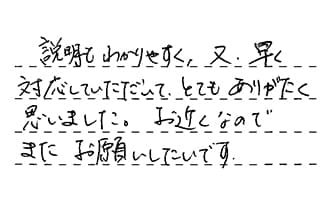 説明も わかりやすく, 又. 早く
対応していただいて、とても ありがたく
思いました。 お近くなので
また お願いしたいです.